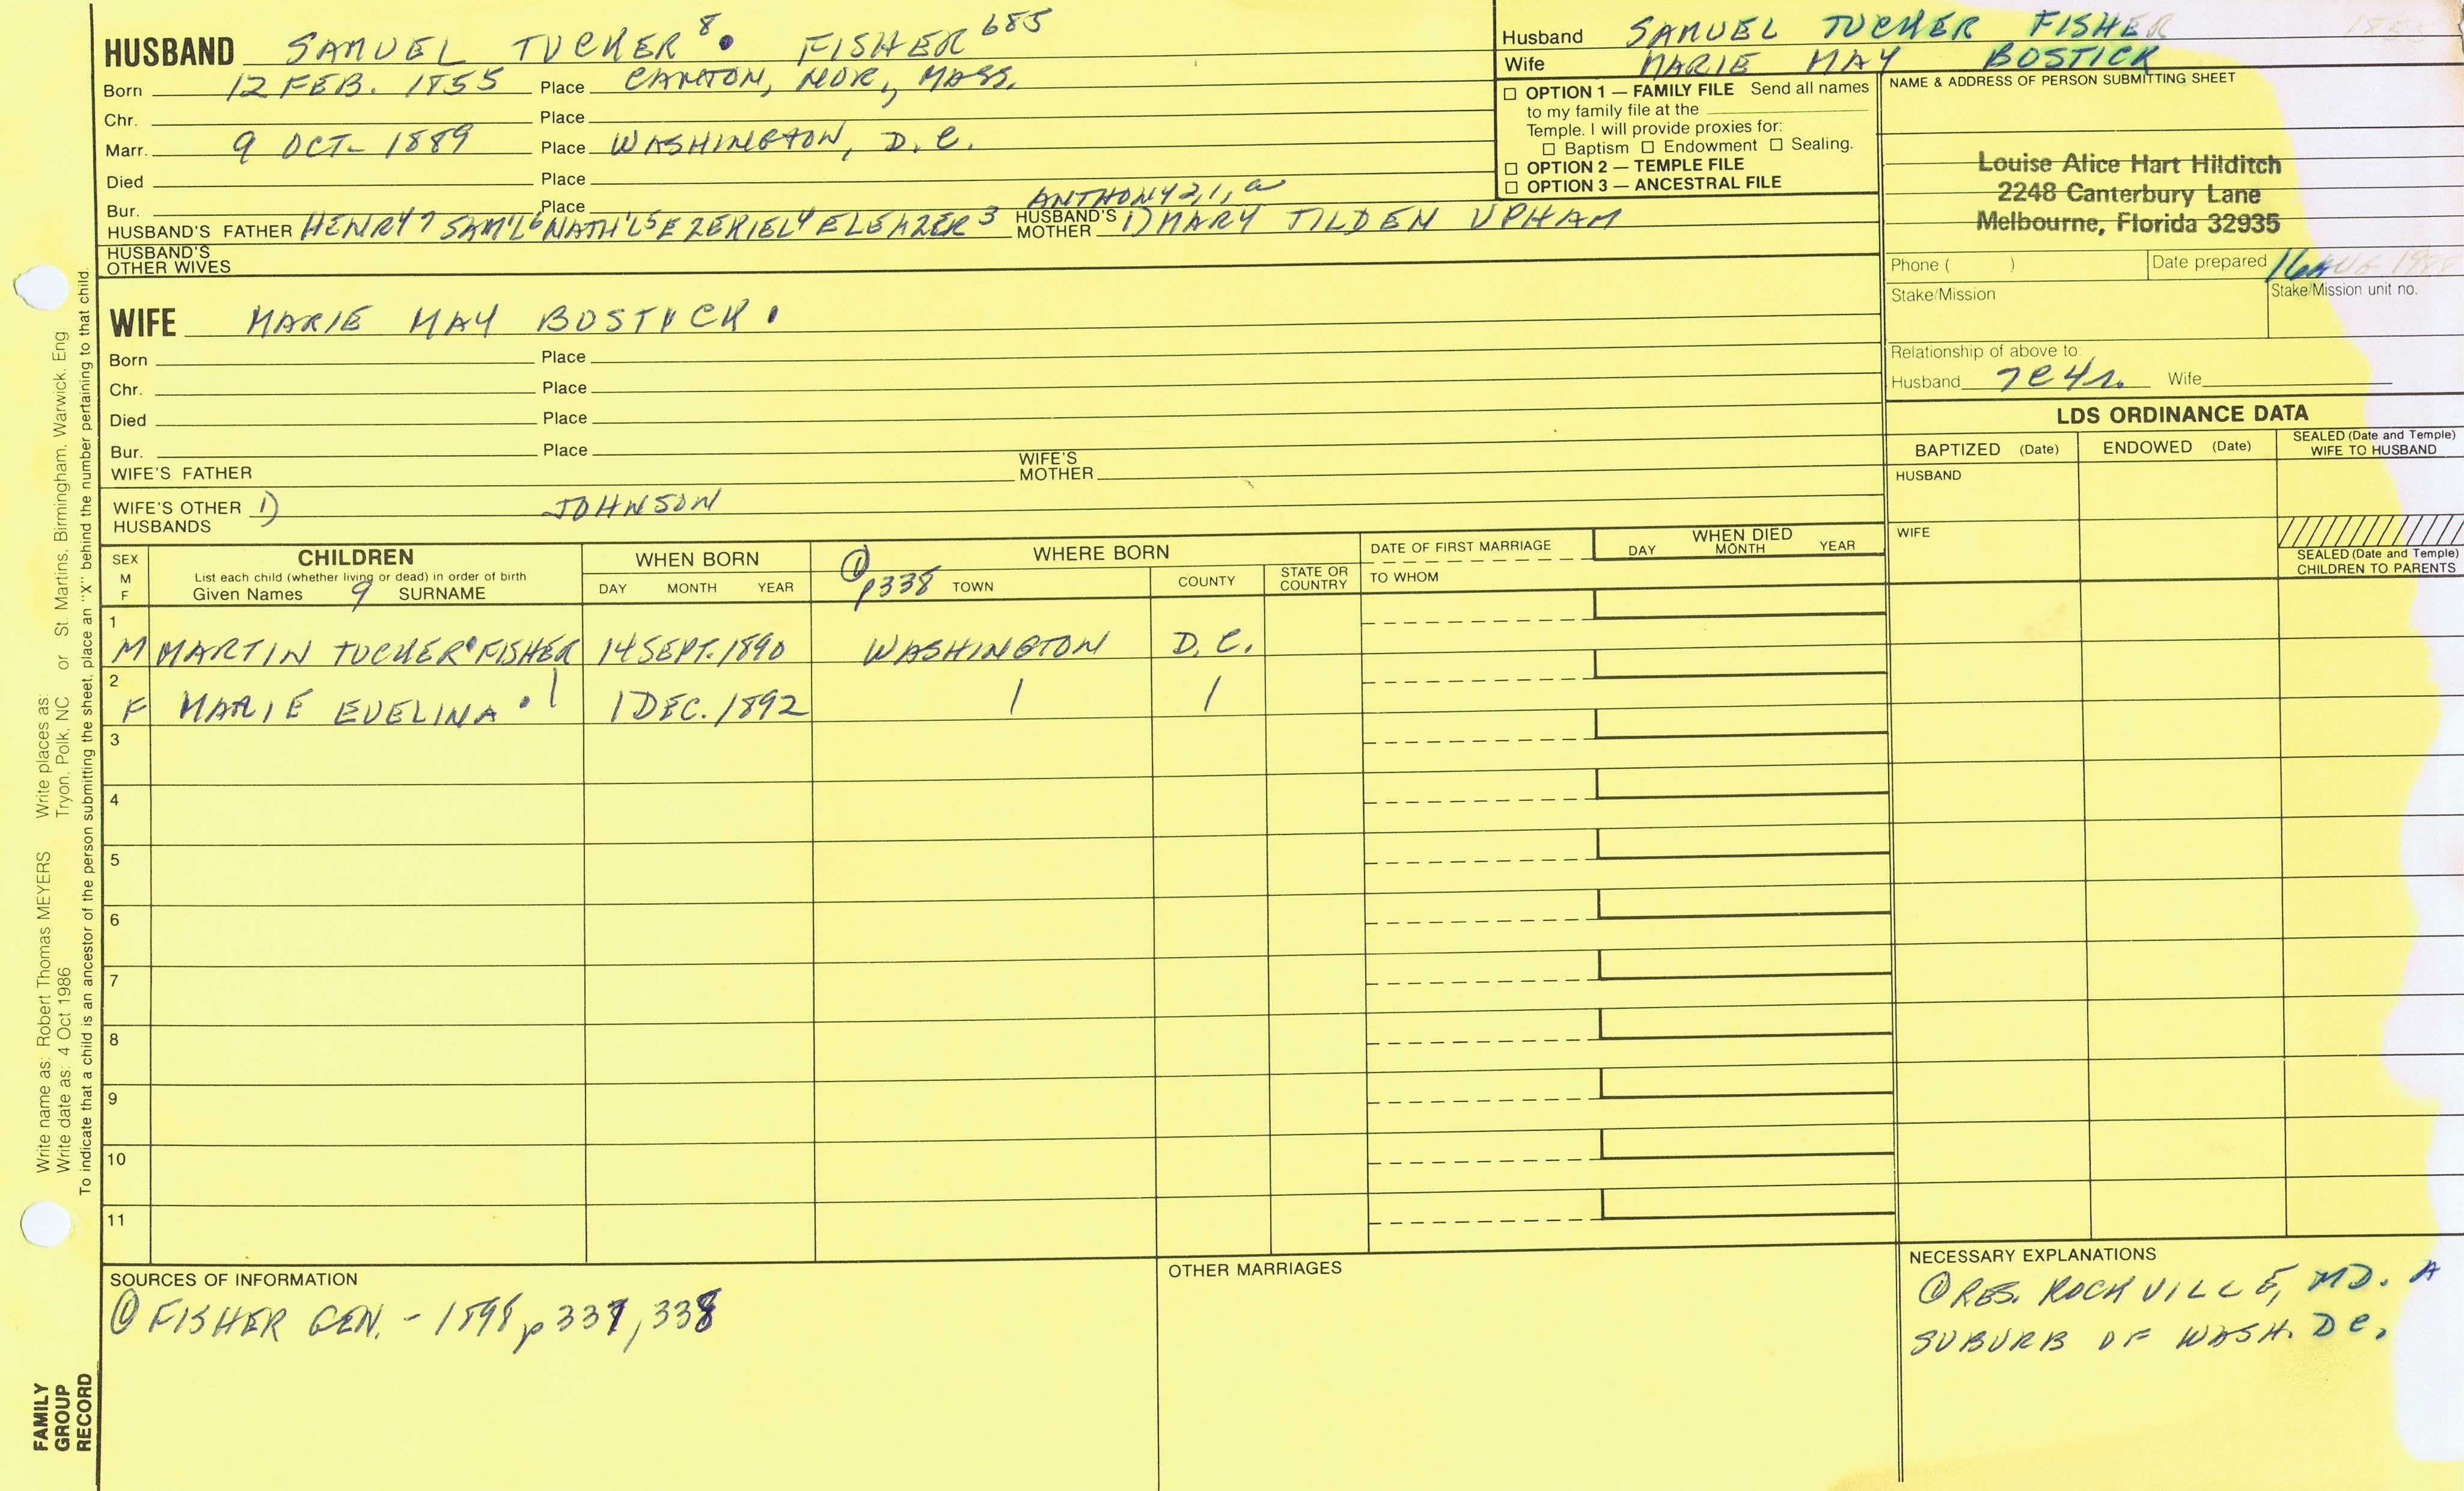 HUSBAND SAMUEL TUCKER 8 • FISHER 685
Born 12 FEB. 1855 Place CANTON, NOR., MASS.
Chr. Place
Marr. 9 OCT- 1889 Place WASHINGTON, D.C.
Died Place
Bur. Place ANTHONY 2,1,a
HUSBAND'S FATHER HENRY 7 SAM'L 6 NATH'L 5 EZEKIEL 4 ELEAZER 3 HUSBAND'S MOTHER 1) MARY TILDEN UPHAM
HUSBAND'S
OTHER WIVES
WIFE MARIE MAY BOSTICK •
Born Place
Chr. Place
Died Place
Bur. Place
WIFE'S FATHER WIFE'S MOTHER
WIFE'S OTHER HUSBANDS 1) JOHNSON
Husband SAMUEL TUCKER FISHER 1855
Wife MARIE MAY BOSTICK
☐ OPTION 1 — FAMILY FILE Send all names
to my family file at the
Temple. I will provide proxies for:
☐ Baptism ☐ Endowment ☐ Sealing.
☐ OPTION 2 — TEMPLE FILE
☐ OPTION 3 — ANCESTRAL FILE
NAME & ADDRESS OF PERSON SUBMITTING SHEET
Louise Alice Hart Hilditch
2248 Canterbury Lane
Melbourne, Florida 32935
Phone ( ) Date prepared 16 AUG. 
Stake/Mission Stake/Mission unit no.
Relationship of above to:
Husband 7C4r. Wife
LDS ORDINANCE DATA
BAPTIZED (Date) ENDOWED (Date) SEALED (Date and Temple) WIFE TO HUSBAND
HUSBAND
WIFE
SEALED (Date and Temple)
CHILDREN TO PARENTS
SEX M F
CHILDREN
List each child (whether living or dead) in order of birth
Given Names 9 SURNAME
WHEN BORN
DAY MONTH YEAR
WHERE BORN
① p338 TOWN COUNTY STATE OR COUNTRY
DATE OF FIRST MARRIAGE
TO WHOM
WHEN DIED
DAY MONTH YEAR
1
M MARTIN TUCKER • FISHER 14 SEPT. 1890 WASHINGTON D.C.
2
F MARIE EVELINA • | 1 DEC. 1892 | |
3
4
5
6
7
8
9
10
11
SOURCES OF INFORMATION
① FISHER GEN. - 1898 p 337, 338
OTHER MARRIAGES
NECESSARY EXPLANATIONS
① RES. ROCKVILLE, MD. A
SUBURB OF WASH. DC.
Write name as: Robert Thomas MEYERS Write places as:
Write date as: 4 Oct 1986 Tryon, Polk, NC or St. Martins, Birmingham, Warwick, Eng
To indicate that a child is an ancestor of the person submitting the sheet, place an "X" behind the number pertaining to that child.
FAMILY
GROUP
RECORD